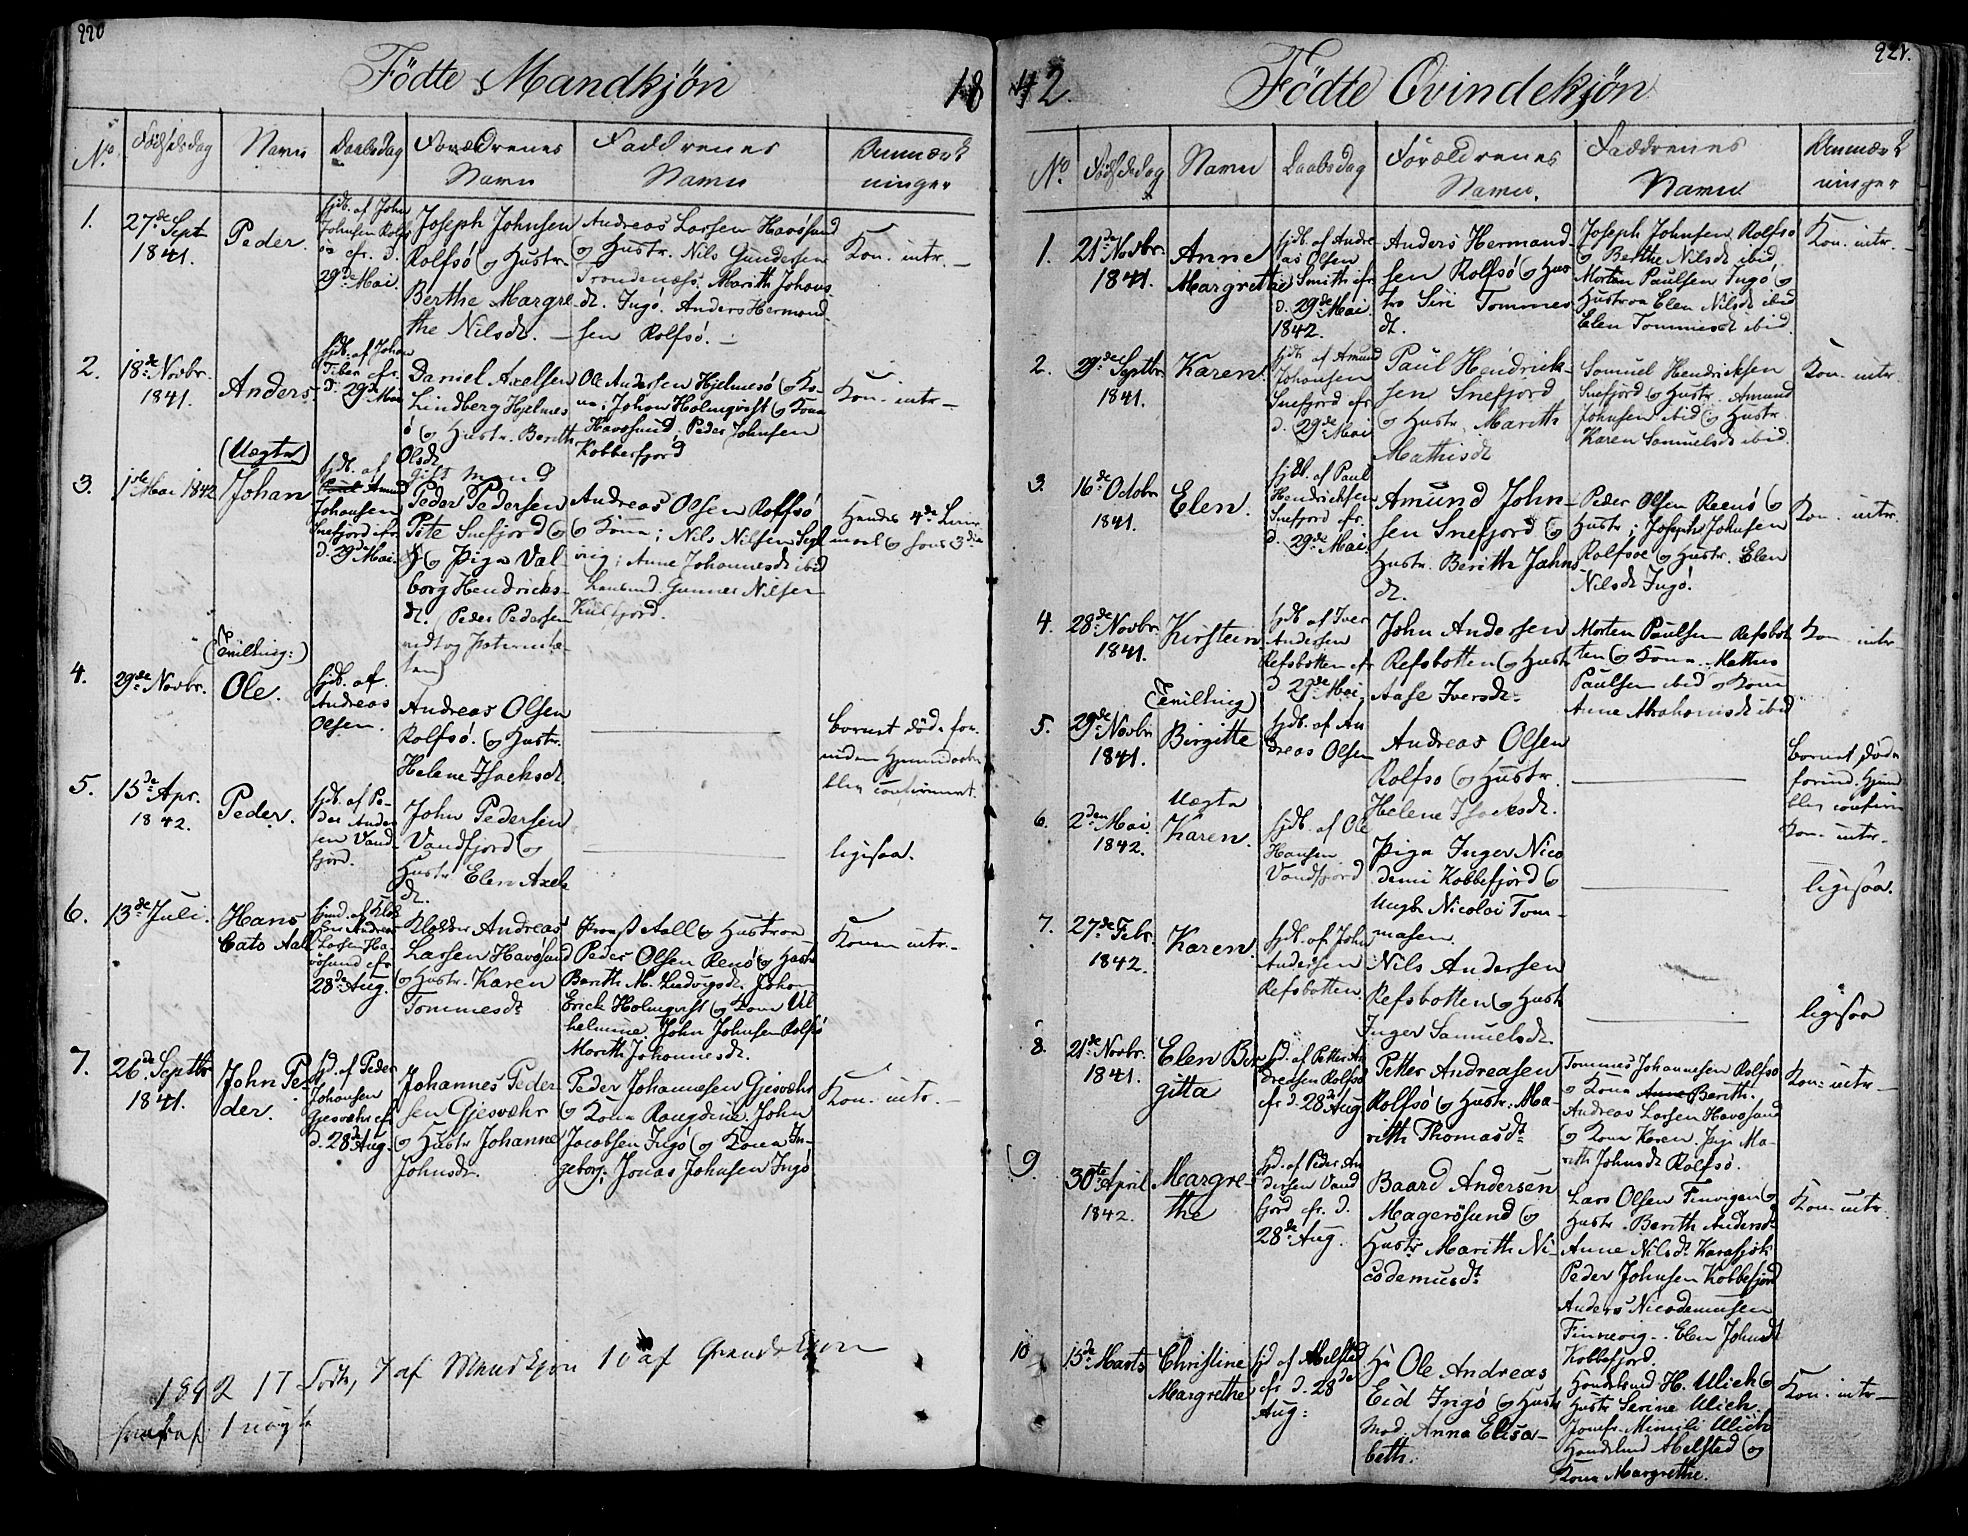 220
Födte Mandkjön
18
No
Födselsdag
Navn
Daabsdag
Forældrenes
Navn
Faddrenes
Navn
Anmærk
ninger
1.
27de Sept
1841.
Peder.
hjdb. af John
Johnsen Rolfs
ö efr. d.
29de Mai.
Joseph Johnsen
Rolfsö og Hustr.
Berthe Margre
the Nilsdt.
Andreas Larsen Havösund
og Hustr. Nils Gundersen
Trondenæss, Marith Johans
dt. Ingö. Anders Hermand
sen Rolfsö.
Kon. intr.
2.
18de Novbr.
1841.
Anders
hjdb. af Johan
efr.
d. 29de Mai
Daniel Axelsen
Lindberg Hjelmes
ö og Hustr. Berith
Olsdt.
Ole Andersen Hjelmesö og Ko
na; Johan Holmqvist og Kona
Havösund. Peder Johnsen
Kobbefjord
Kon. intr.
3.
1ste Mai 1842
(Uægte)
Johan
hjdb. af
Amund
Johansen
Snefjord efr.
d. 29de Mai.
Gift Mand
Peder Pedersen
Pite Snefjord og
og Pige Val
borg Hendricks
dt. (Peder Pedersen
Andreas Olsen Rolfsö
og Kona; Nils Nilsen
vig; Anne Johannesdt ibid
Gunner Nilsen
Kulfjord.
Hendes 4de Leier
maal og hans 3die
4.
29de Novbr.
(Tvilling:)
Ole.
hjdb. af
Andreas
Olsen.
Andreas Olsen
Rolfsö. og Hustr.
Helene Isacksdt.
Barnet döde for
inden Hjemmedaaben
blev confirmeret.
5.
15de Apr.
1842.
Peder.
hjdb. af Pe-
der Ander
sen Vand
fjord.
John Pedersen
Vandfjord og
Hustr Elen Axels
dt.
ligesaa.
6.
13de Juli.
Hans
Cato Aall
hjmd. af Klok
ker Andreas
Larsen Ha
vösund efr.
28de Aug.
Klokker Andreas
Larsen Havösund
og Hustr. Karen
Tommesdt
Provst Aall og Hustrue
Peder Olsen Renö og Hustr
Berith M. Ludvigsdt. Johan
Erick Holmqvist og Kona Vil
helmine John Johnsen Rolfsö
Marith Johannesdt.
Konen intr.
7.
26de Septbr
1841.
John Pe
der.
hjd. af Peder
Johansen
Gjesvær efr
d. 28de Aug.
Johannes Peder
sen Gjesvær
og Hustr Johanne
Johnsdt.
Peder Johannesen Gjesvær
og Kona Rangdine. John
Jacobsen Ingö og Kona In-
geborg; Jonas Johnsen Ingö
Kon. intr.
1842 17 Födte, 7 af Mandkjön 10 af Qvindekjön
heraf 1 uægte
221.
42.
Födte Qvindekjön
No
Födselsdag
Navn
Daabsdag
Forældrenes
Navn.
Faddrenes
Navne
Anmærk
ninger
1.
21de Novbr.
1841.
Anne
Margrethe
hjdb. af Andre
as Olsen
Smith efr
d. 29de Mai
1842.
Anders Hermand
sen Rolfsö og Hus
tro Siri Tommes
dt.
Joseph Johnsen, Rolfsö
og Berthe Nilsdt ibid.
Morten Paulsen Ingö og
Hustrue Elen Nilsdt ibid
Elen Tommesdt ibid.
Kon. intr.
2.
29de Septbr.
1841.
Karen.
hjdb. af Amund
Johansen
Snefjord efr
d. 29de Mai
Paul Hendrick-
sen Snefjord
og Hustr. Marith
Mathisdt
Samuel Hendricksen
Snefjord og Hustr. Amund
Johnsen ibid og Hustr.
Karen Samuelsdt ibid.
Kon. intr.
3.
16de Octobr
1841.
Elen.
hjdb. af Paul
Hendricksen
Snefjord efr.
d. 29de Mai.
Amund John-
sen Snefjord og
Hustr. Berith Johns
dt.
Peder Olsen Reenö og
Hustr; Joseph Johnsen
Rolfsöe og Hustr. Elen
Nilsdt Ingö.
Kon. intr.
4.
28de Novbr.
1841.
Kirsten
hjdb af Iver
Andersen
Refsbotten efr
d 29de Mai,
John Andersen
Refsbotten og Hustr
Aase Iversdt.
Morten Paulsen Refsbot
ten og Kona. Mathis
Paulsen ibid og Kone
Anne Abrahamsdt ibid
Kon. intr
5.
29de Novbr
1841.
(Tvilling)
Birgitte
hjdb. af An
dreas Olsen
Andreas Olsen
Rolfsö og Hustr.
Helene Isacksdt.
Barnet döde
forind. Hjem
blev confirm
Kon. intr.
6.
2den Mai
1842.
Uægte
Karen.
hjdb. af Ole
Hansen
Vandfjord
Pige Inger Nico
demi Kobbefjord og
Ungk. Nicolai Tom-
masen.
ligesaa.
7.
27de Febr.
1842.
Karen.
hjdb. af John
Andersen
Refsbotten
Nils Andersen
Refsbotten og Hustr
Inger Samuelsdt.
ligesaa
8.
21de Novbr.
1841.
Elen Bir
gitta
hjd. af Petter An
dreasen Rolfsö
efr d. 28de Aug
Petter Andreasen
Rolfsö og Hustr: Ma-
rith Thomasdt.
Tommes Johannesen Rolfsö
og Kona Anne Berith.
Andreas Larsen Havösund
og Kona Karen. Pige Ma-
rith Johnsdt Rolfsö.
Kon. intr
9.
30te April
1842.
Margre-
the
hjd. af Peder An
dersen Vand
fjord efr. d.
28de Aug.
Baard Andersen
Magerösund og
Hustr Marith Ni-
codemusdt.
Lars Olsen Finvigen og
Hustr. Berith Andersdt.
Anne Nilsdt. Karasjok
Peder Johnsen Kobbefjord
Anders Nicodemusen
Finnevig. Elen Johnsdt
Kobbefjord.
Kon. intr.
10
15de Marts
Christine
Margrethe
hjd af Abelsted
efr d. 28de
Aug:
Hr Ole Andreas
Eid Ingö og Hustr
Mad. Anna Elisa-
beth.
Handelsmd H. Ulich og
Hustr Serine Ulich.
Jomfr. Mimili Ulich
Handelsmd Abelsted og
Kona Margrethe.
Kon. intr